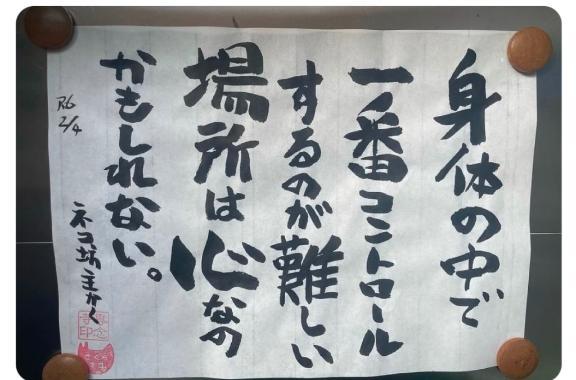 身体の中で
一番コントロール
するのが難しい
場所は心なの
かもしれない。
R6
2/4
ネコ坊主かく